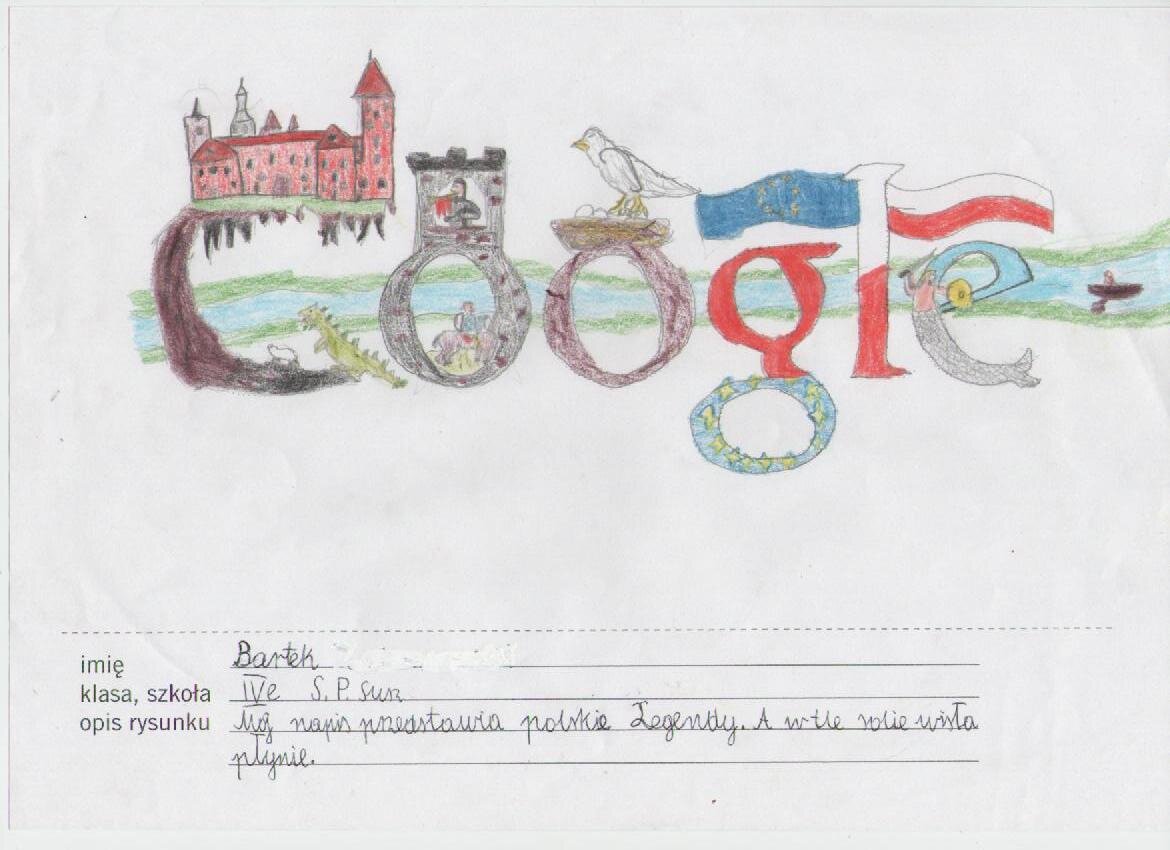 Google
imię Bartek
klasa, szkoła IVe S.P. Sur.
opis rysunku Mój napis przedstawia polskie Legendy. A w tle solie wisła
płynie.